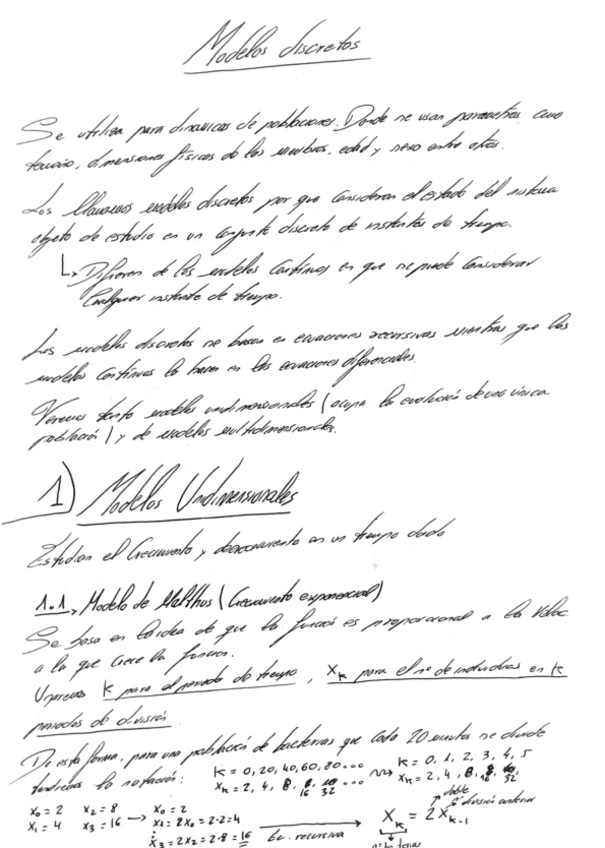 Modelos discretos
Se utiliza para dinámicas de poblaciones. Donde se usan parametros como
tamaño, dimensiones físicas de los miembros, edad y sexo entre otros.
Los llamamos modelos discretos por que consideran el estado del sistema
objeto de estudio en un conjunto discreto de instantes de tiempo.
↳ Difieren de los modelos continuos en que se puede considerar
cualquier instante de tiempo.
Los modelos discretos se basan en ecuaciones recursivas mientras que los
modelos continuos lo hacen en las ecuaciones diferenciales.
Veremos tanto modelos unidimensionales (ocupa la evolución de una única
población) y de modelos multidimensionales.
1) Modelos Unidimensionales
Estudian el crecimiento y decrecimiento en un tiempo dado
1.1, Modelo de Malthus (Crecimiento exponencial)
Se basa en la idea de que la función es proporcional a la veloc.
a la que crece la función.
Usaremos k para el periodo de tiempo, Xk para el nº de individuos en k
periodos de división.
De esta forma, para una población de bacterias que cada 20 minutos se divide
tendríamos la notación: K = 0, 20, 40, 60, 80... ⇝ K = 0, 1, 2, 3, 4, 5
Xk = 2, 4, 8, 16, 32 ... Xk = 2, 4, 8, 16, 32
doble
división anterior
X0 = 2 X2 = 8 → X0 = 2
X1 = 4 X3 = 16 X1 = 2X0 = 2·2 = 4
X3 = 2X2 = 2·8 = 16 Ec. recursiva Xk = 2Xk-1